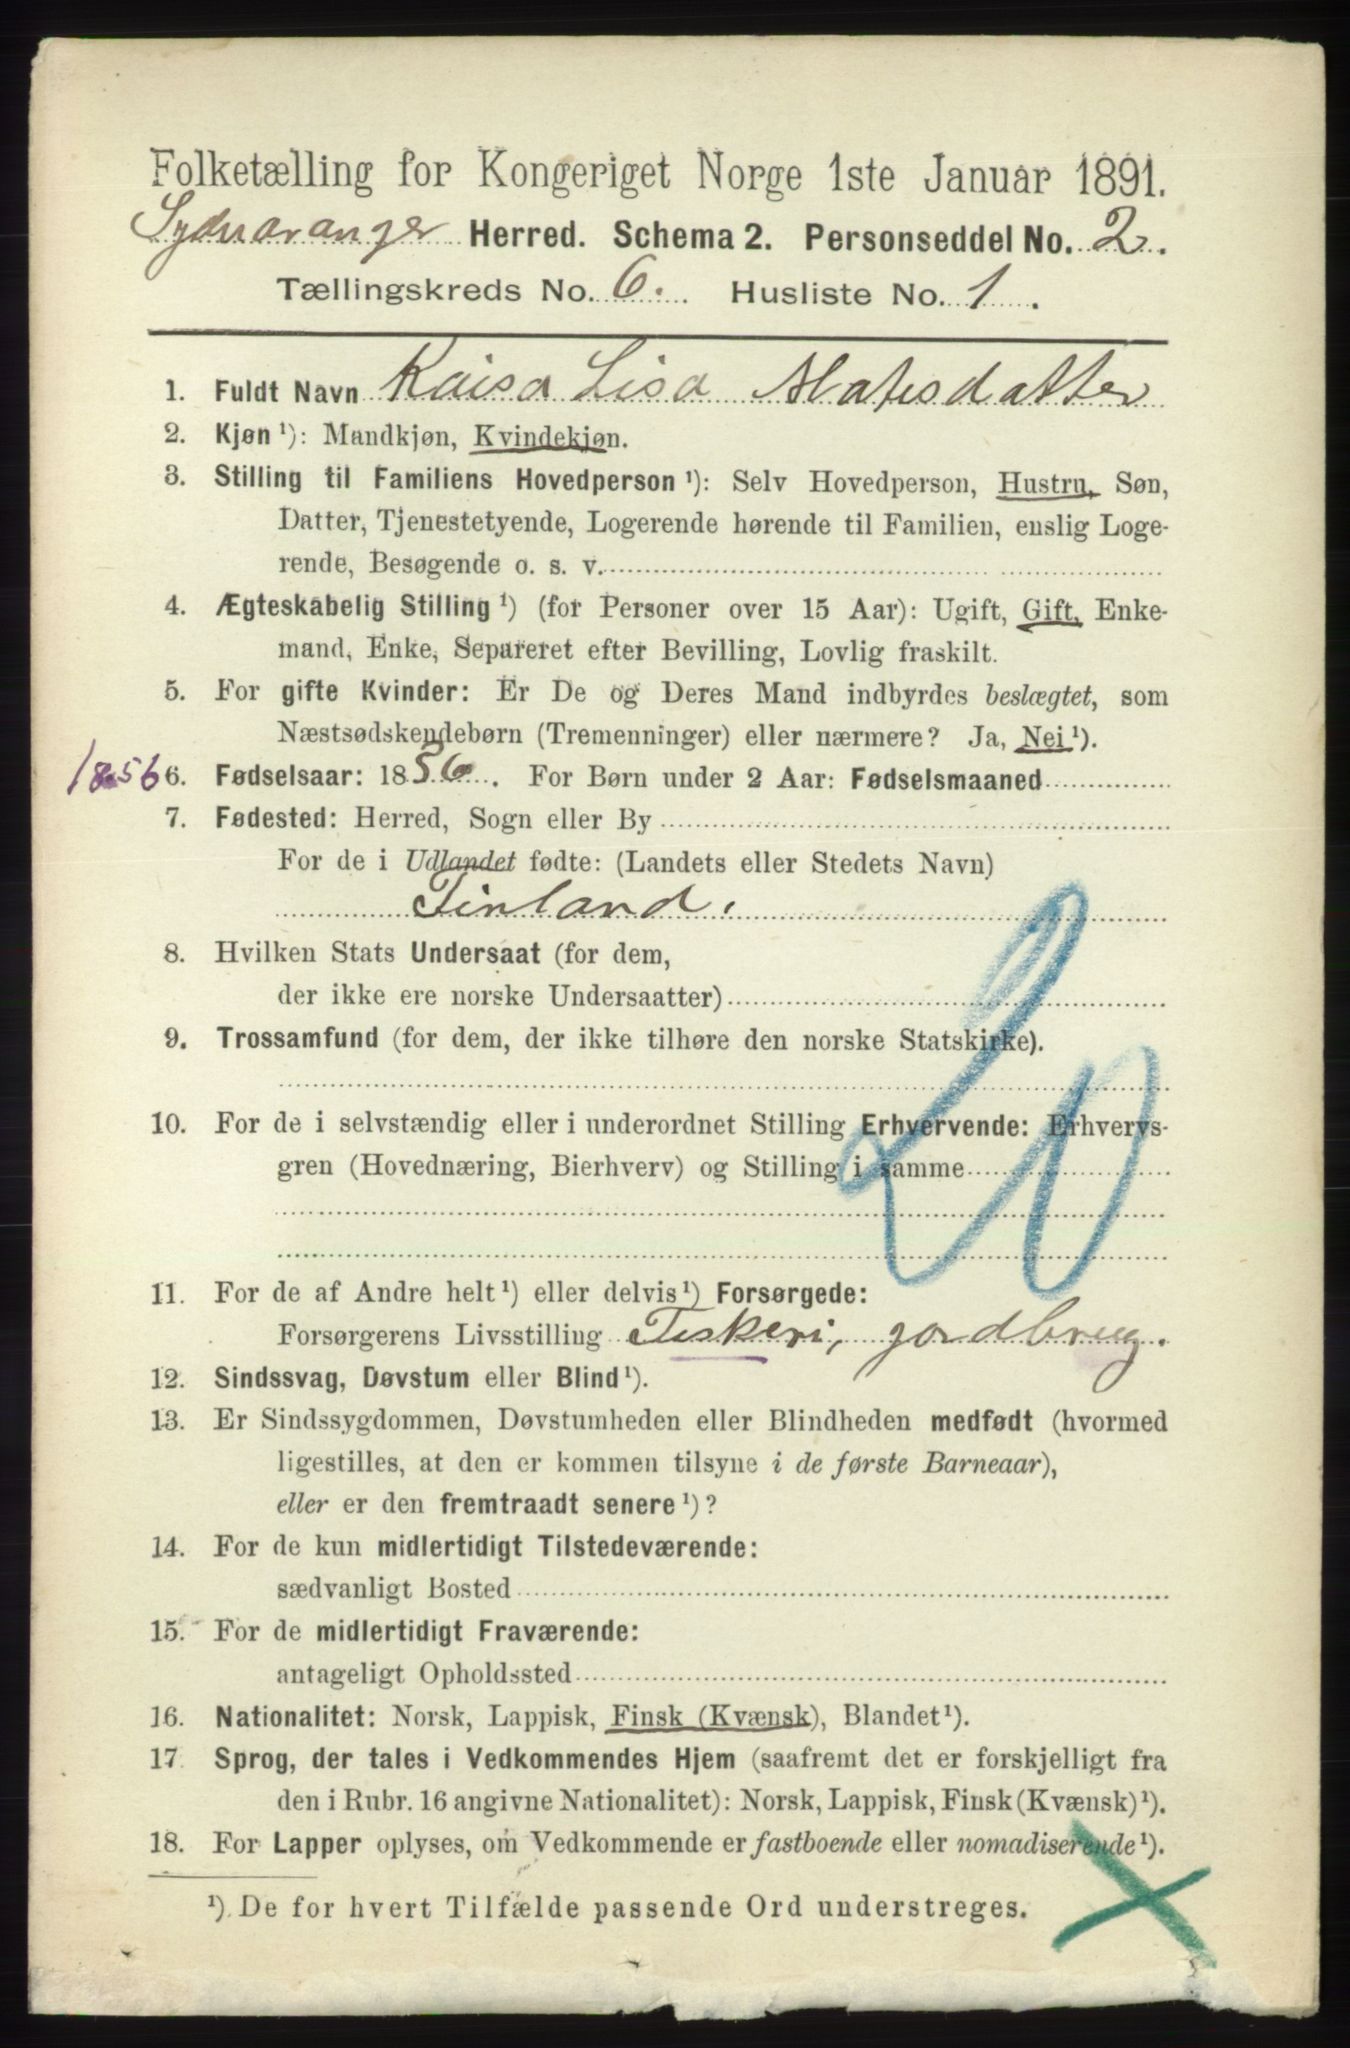 Folketælling for Kongeriget Norge 1ste Januar 1891.
Sydvaranger Herred. Schema 2. Personseddel No. 2.
Tællingskreds No. 6. Husliste No. 1.
1. Fuldt Navn Kaisa Lisa Matisdatter
2. Kjøn ¹): Mandkjøn, Kvindekjøn.
3. Stilling til Familiens Hovedperson ¹): Selv Hovedperson, Hustru, Søn,
Datter, Tjenestetyende, Logerende hørende til Familien, enslig Loge-
rende, Besøgende o. s. v.
4. Ægteskabelig Stilling ¹) (for Personer over 15 Aar): Ugift, Gift, Enke-
mand, Enke, Separeret efter Bevilling, Lovlig fraskilt.
5. For gifte Kvinder: Er De og Deres Mand indbyrdes beslægtet, som
Næstsødskendebørn (Tremenninger) eller nærmere? Ja, Nei ¹).
1856 6. Fødselsaar: 1856. For Børn under 2 Aar: Fødselsmaaned
7. Fødested: Herred, Sogn eller By
For de i Udlandet fødte: (Landets eller Stedets Navn)
Finland.
8. Hvilken Stats Undersaat (for dem,
der ikke ere norske Undersaatter)
9. Trossamfund (for dem, der ikke tilhøre den norske Statskirke).
20
10. For de i selvstændig eller i underordnet Stilling Erhvervende: Erhvervs-
gren (Hovednæring, Bierhverv) og Stilling i samme
11. For de af Andre helt ¹) eller delvis ¹) Forsørgede:
Forsørgerens Livsstilling Fiskeri, jordbrug.
12. Sindssvag, Døvstum eller Blind ¹).
13. Er Sindssygdommen, Døvstumheden eller Blindheden medfødt (hvormed
ligestilles, at den er kommen tilsyne i de første Barneaar),
eller er den fremtraadt senere ¹)?
14. For de kun midlertidigt Tilstedeværende:
sædvanligt Bosted
15. For de midlertidigt Fraværende:
antageligt Opholdssted
16. Nationalitet: Norsk, Lappisk, Finsk (Kvænsk), Blandet ¹).
17. Sprog, der tales i Vedkommendes Hjem (saafremt det er forskjelligt fra
den i Rubr. 16 angivne Nationalitet): Norsk, Lappisk, Finsk (Kvænsk) ¹).
18. For Lapper oplyses, om Vedkommende er fastboende eller nomadiserende ¹).
¹) De for hvert Tilfælde passende Ord understreges.